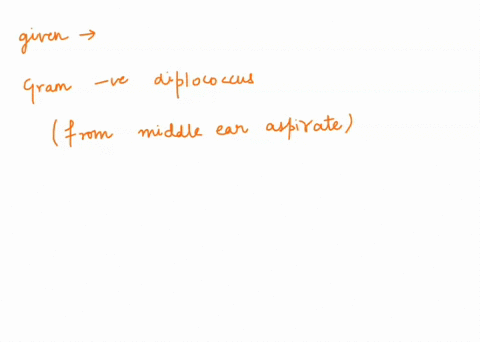 given →
Gram -ve diplococcus
(from middle ear aspirate)